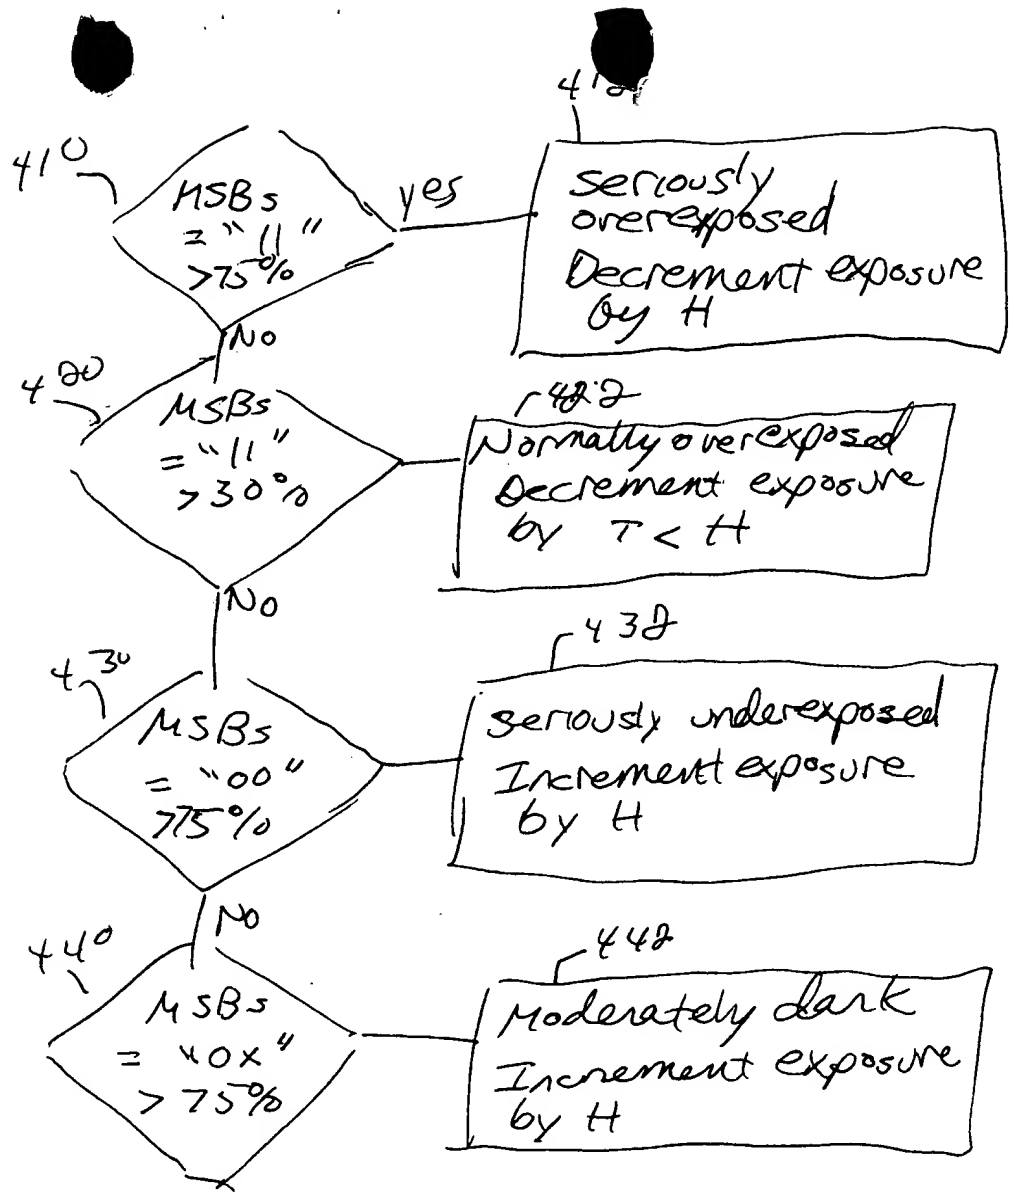 412
410
MSBs
= "11"
>75%
yes
seriously
overexposed
Decrement exposure
by H
No
420
MSBs
= "11"
>30%
422
Normally overexposed
Decrement exposure
by T < H
No
430
MSBs
= "00"
>75%
432
seriously underexposed
Increment exposure
by H
No
440
MSBs
= "0x"
> 75%
442
Moderately dark
Increment exposure
by H